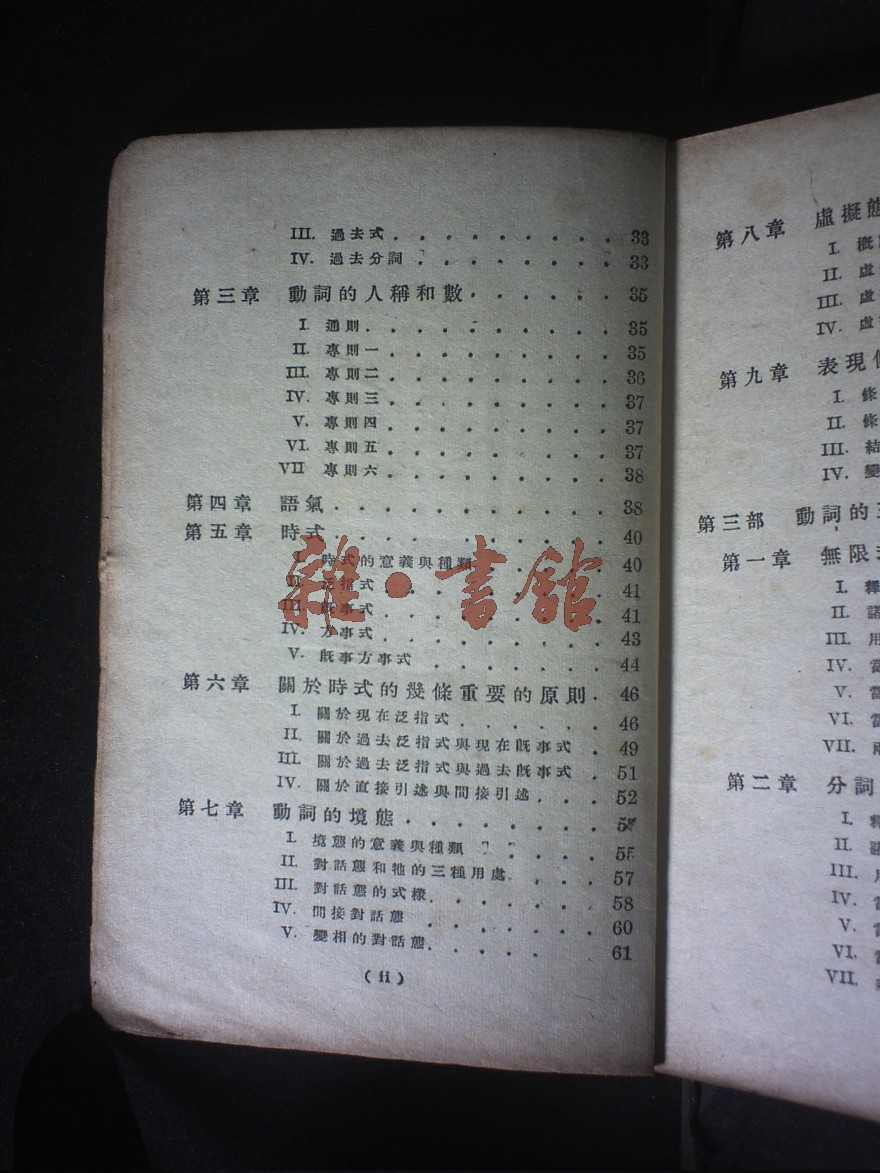 III. 過去式 . . . . . . . . . 33
IV. 過去分詞 . . . . . . . . 33
第三章 動詞的人稱和數 . . . . . . 35
I. 通則 . . . . . . . . . 35
II. 專則一 . . . . . . . . . 35
III. 專則二 . . . . . . . . . 36
IV. 專則三 . . . . . . . . . 37
V. 專則四 . . . . . . . . . 37
VI. 專則五 . . . . . . . . . 37
VII 專則六 . . . . . . . . . 38
第四章 語氣 . . . . . . . . . . 38
第五章 時式 . . . . . . . . . . 40
I. 時式的意義與種類 . . . . . . 40
II. 泛指式 . . . . . . . . 41
III. 旣事式 . . . . . . . . 41
IV. 方事式 . . . . . . . . 43
V. 旣事方事式 . . . . . . . 44
第六章 關於時式的幾條重要的原則 . 46
I. 關於現在泛指式 . . . . . . 46
II. 關於過去泛指式與現在旣事式 . 49
III. 關於過去泛指式與過去旣事式 . 51
IV. 關於直接引述與間接引述 . . . 52
第七章 動詞的境態 . . . . . . . . 5
I. 境態的意義與種類 . . . . . 55
II. 對話態和牠的三種用處 . . . . 57
III. 對話態的式樣 . . . . . . . 58
IV. 間接對話態 . . . . . . . 60
V. 變相的對話態 . . . . . . . 61
(ii)
雜·書館
第八章 虛擬態
I. 概
II. 虛
III. 虛
IV. 虛
第九章 表現
I. 條
II. 條
III. 結
IV. 變
第三部 動詞的
第一章 無限
I. 釋
II. 諸
III. 用
IV. 當
V. 當
VI. 當
VII. 兩
第二章 分詞
I. 釋
II. 諸
III. 用
IV. 當
V. 當
VI. 當
VII.